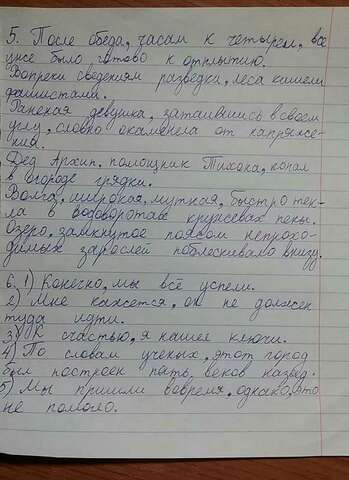 5. После обеда, часам к четырем, всё
уже было готово к открытию.
Вопреки сведениям разведки, леса кишели
фашистами.
Раненая девушка, затаившись в своем
углу, словно окаменела от напряже-
ния.
Дед Архип, помощник Тихона, копал
в огороде грядки.
Волга, широкая, мутная, быстро тек-
ла в водоворотах кружевах пены.
Озеро, замкнутое поясом непрохо-
димых зарослей поблескивало внизу.
6. 1) Конечно, мы всё успели.
2) Мне кажется, он не должен
туда идти.
3) К счастью, я нашел ключи.
4) По словам ученых, этот город
был построен пять веков назад.
5) Мы пришли вовремя, однако, это
не помогло.